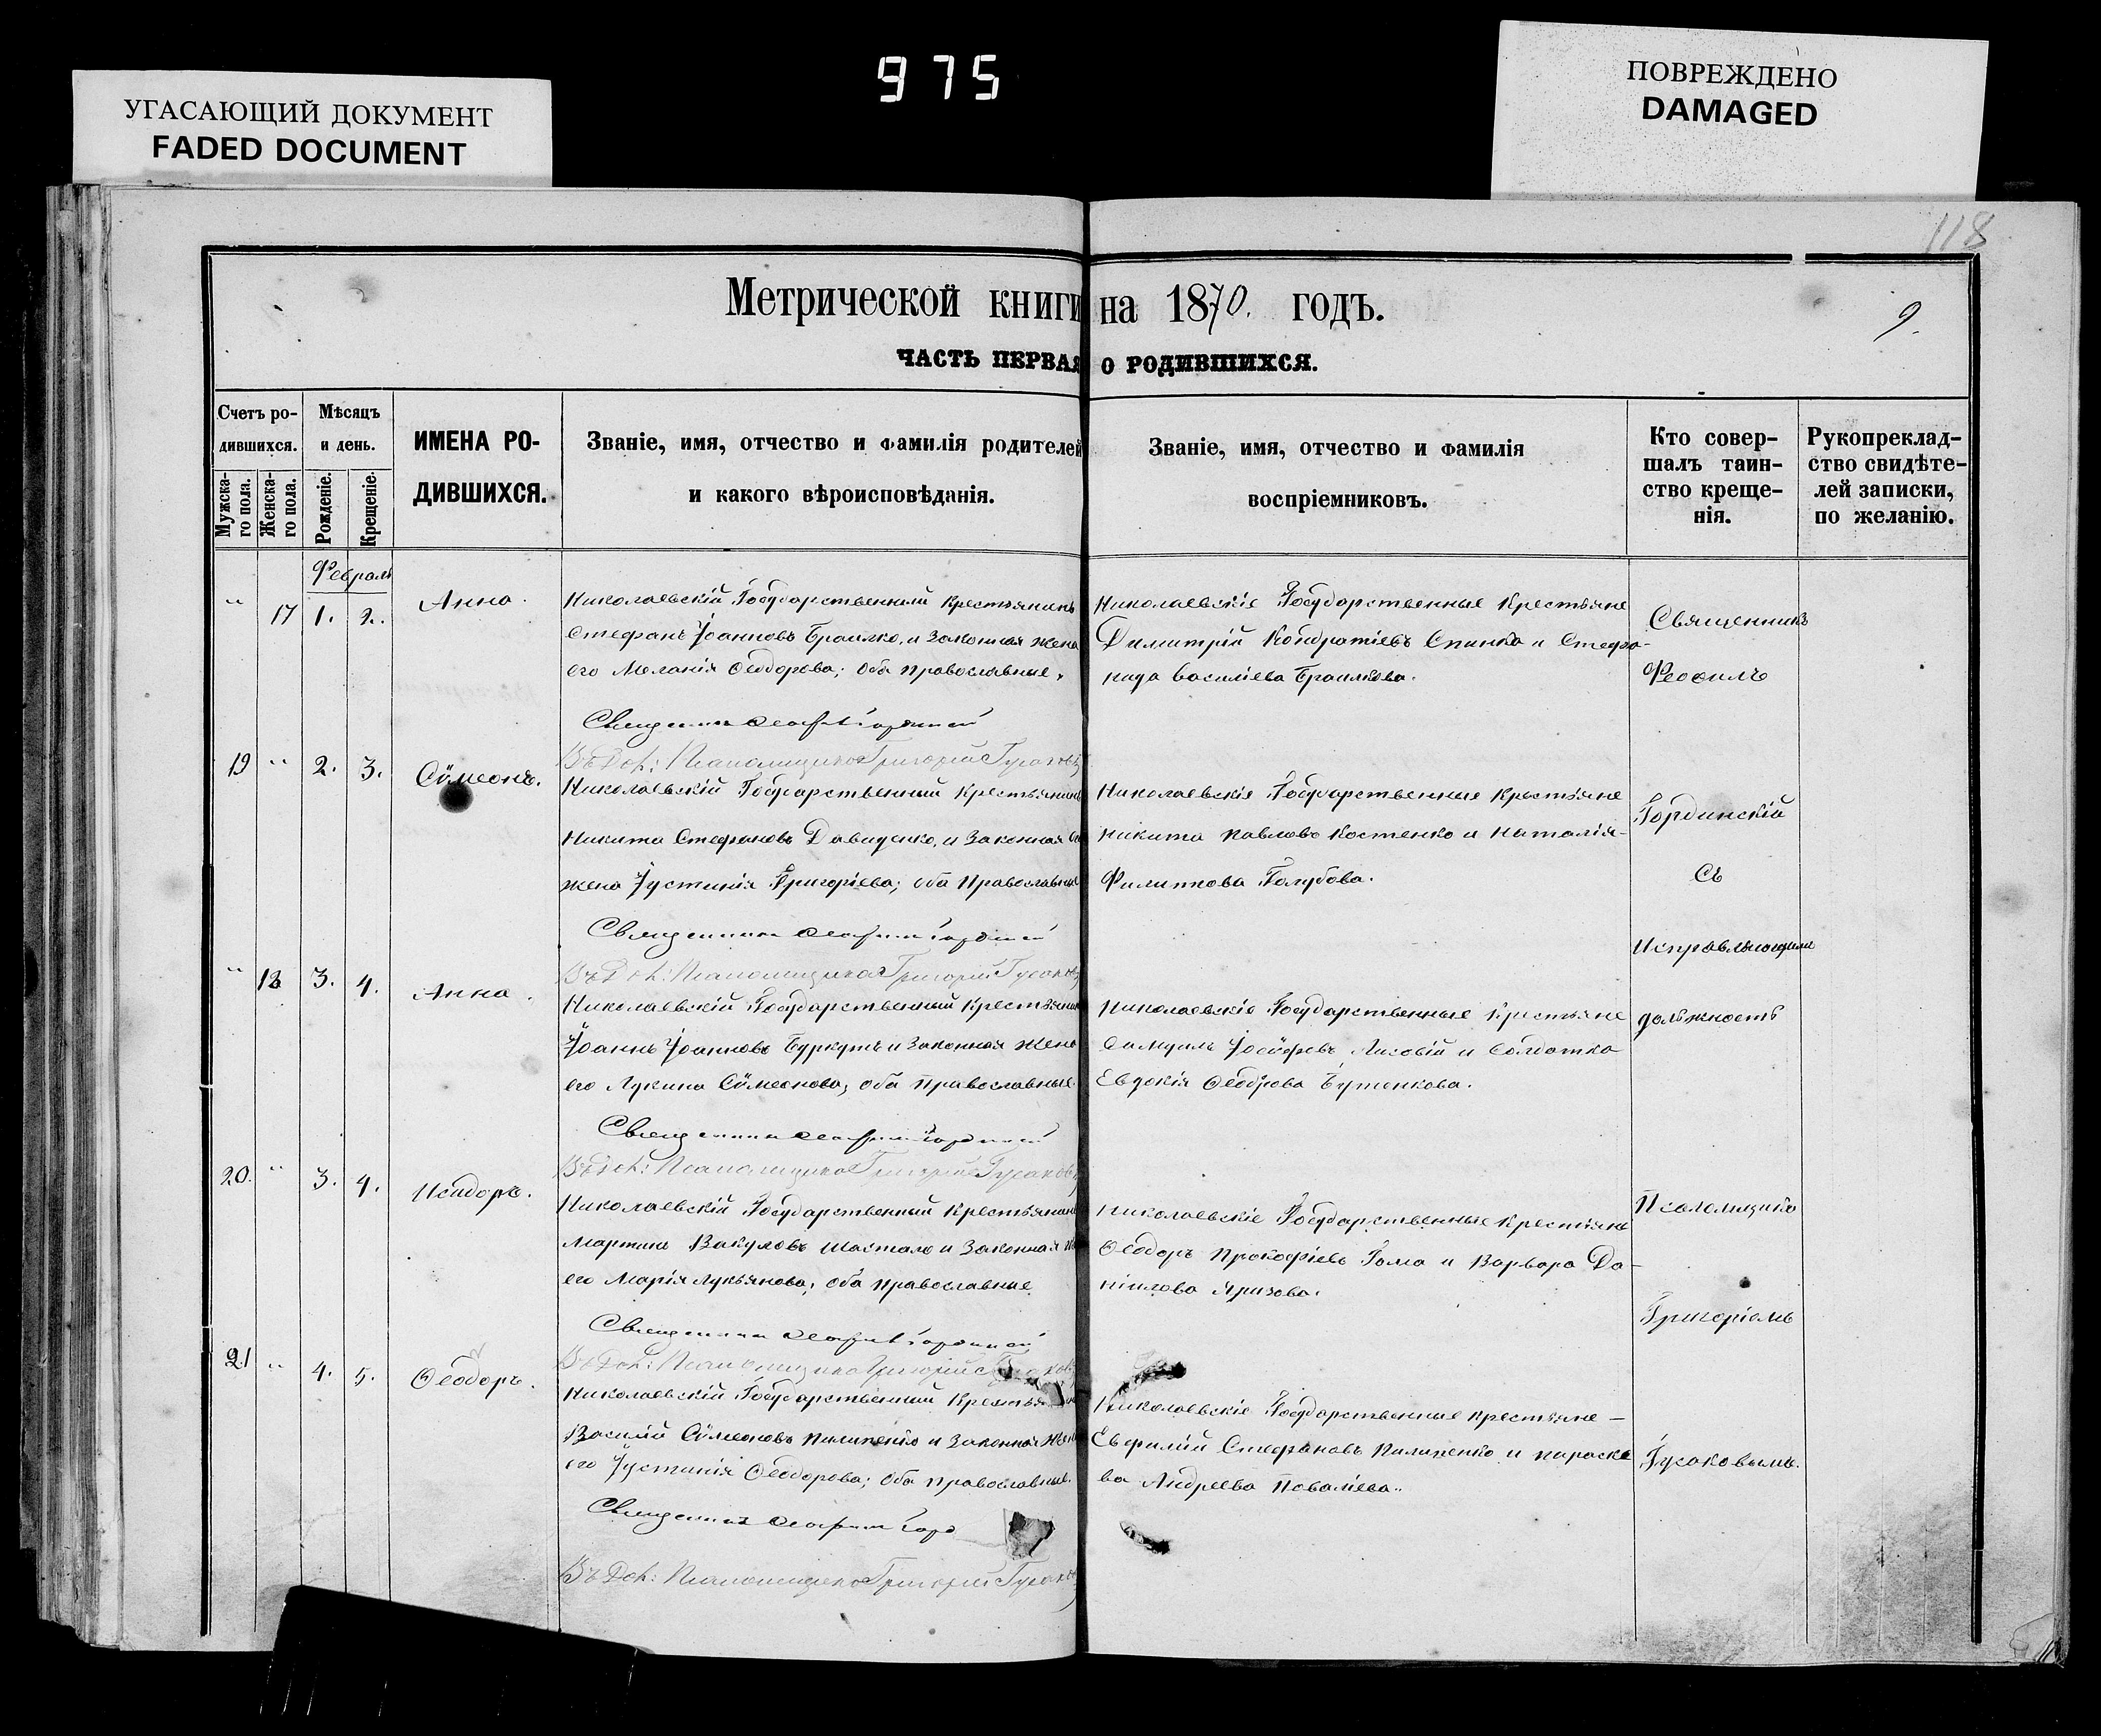 975
УГАСАЮЩИЙ ДОКУМЕНТ
FADED DOCUMENT
ПОВРЕЖДЕНО
DAMAGED
118
Метрической книги на 1870. годъ.
9.
ЧАСТЬ ПЕРВАЯ О РОДИВШИХСЯ.
Счетъ ро-
дившихся.
Мужска-
го пола.
Женска-
го пола.
Мѣсяцъ
и день.
Рожденіе.
Крещеніе.
ИМЕНА РО-
ДИВШИХСЯ.
Званіе, имя, отчество и фамилія родителей
и какого вѣроисповѣданія.
Званіе, имя, отчество и фамилія
воспріемниковъ.
Кто совер-
шалъ таин-
ство креще-
нія.
Рукоприклад-
ство свидѣте-
лей записки,
по желанію.
Февраль
" 17 1. 2. Анна.
Николаевскій Государственный Крестьянинъ
Стефанъ Іоанновъ Браилко, и законная жена
его Меланія Ѳеодорова; оба православные.
Николаевскіе Государственные Крестьяне
Димитрій Кондратіевъ Спинка и Стефа-
нида Василіева Браилкова.
Священникъ
Въ Дол: Псаломщика Григорій Гусаковъ
19 " 2. 3. Сѵмеонъ.
Николаевскій Государственный Крестьянинъ
Никита Стефановъ Давиденко, и законная
жена Іустинія Григоріева; оба Православные
Николаевскіе Государственные Крестьяне
Никита Павловъ Костенко и Наталія
Филиппова Голубова.
Священникъ
Въ Дол: Псаломщика Григорій Гусаковъ
" 18 3. 4. Анна.
Николаевскій Государственный Крестьянинъ
Іоаннъ Іоанновъ Буркутъ и законная жена
его Лукина Сѵмеонова; оба православные.
Николаевскіе Государственные Крестьяне
Самуилъ Іосифовъ Лисовій и Солдатка
Евдокія Ѳеодорова Бутенкова.
Священникъ
Въ Дол: Псаломщика Григорій Гусаковъ
20. " 3. 4. Исидоръ.
Николаевскій Государственный Крестьянинъ
Мартинъ Вакуловъ Шастало и законная
его Марія Лукьянова; оба православные
Николаевскіе Государственные Крестьяне
Ѳеодоръ Прокофіевъ Гома и Варвара Да-
ніилова Яризова.
Священникъ
Въ Дол: Псаломщика Григорій
21 " 4. 5. Ѳеодоръ.
Николаевскій Государственный
Василій Сѵмеоновъ Пилипенко и законная жена
его Іустинія Ѳеодорова; оба православные.
Николаевскіе Государственные крестьяне
Евфимій Стефановъ Пилипенко и параске
ва Андреева Поваліева.
Священникъ
Въ Дол: Псаломщика Григорій Гусаковъ
Священникъ
Феофилъ
Гординскій
Съ
Исправляющимъ
должность
Псаломщика
Григоріемъ
Гусаковымъ.